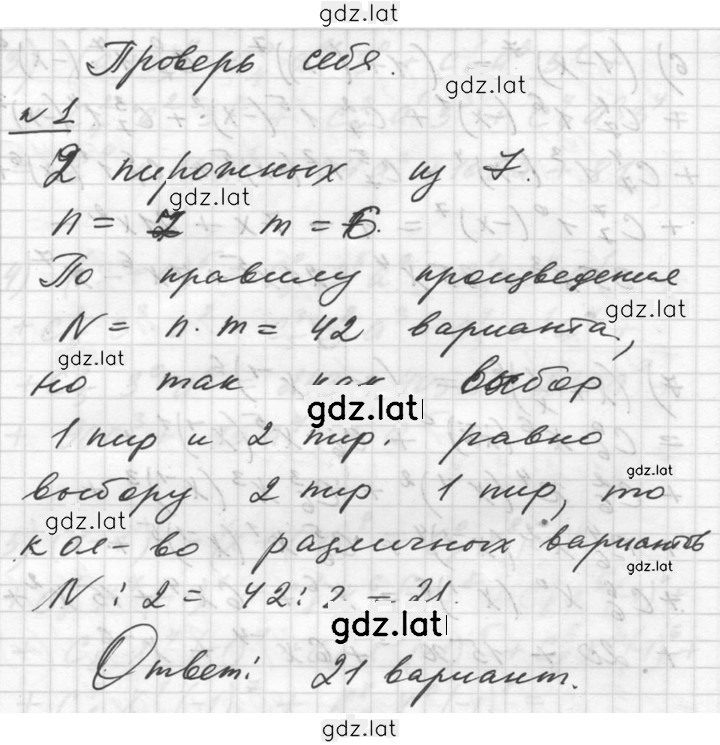 gdz.lat
Проверь себя.
gdz.lat
№1
2 пирожных из 7.
gdz.lat
n = 7 m = 6.
По правилу произведения
gdz.lat
N = n·m = 42 варианта,
gdz.lat
но так как выбор
gdz.lat
1 пир и 2 пир. равно
gdz.lat
выбору 2 пир 1 пир, то
gdz.lat
кол-во различных вариантов
gdz.lat
N : 2 = 42 : 2 = 21.
gdz.lat
Ответ: 21 вариант.
gdz.lat